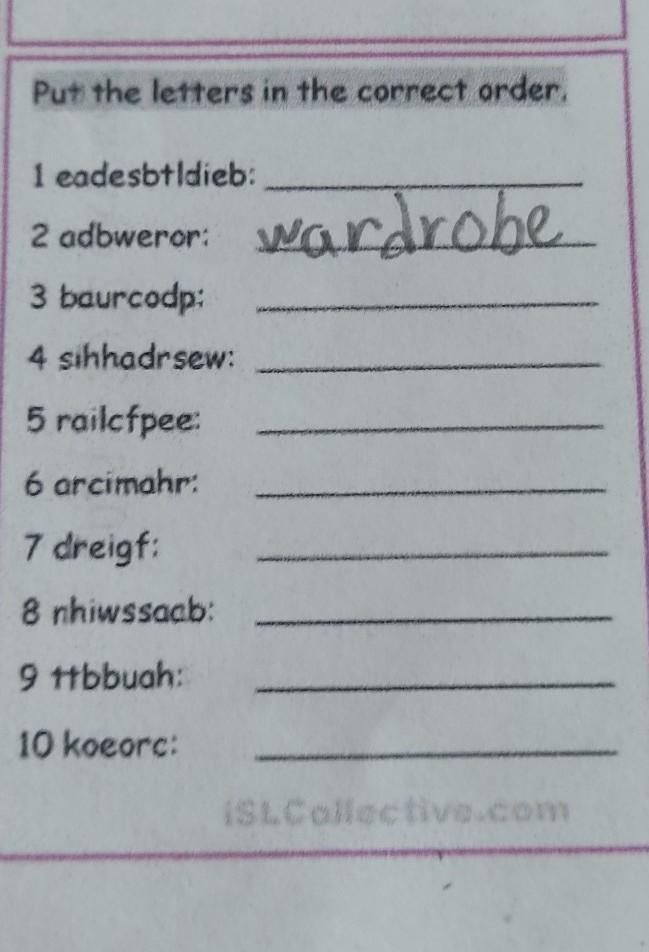 Put the letters in the correct order.
1 eadesbtldieb:
2 adbweror: wardrobe
3 baurcodp:
4 sihhadrsew:
5 railcfpee:
6 arcimahr:
7 dreigf:
8 nhiwssacb:
9 ttbbuah:
10 koeorc:
iSLCollective.com